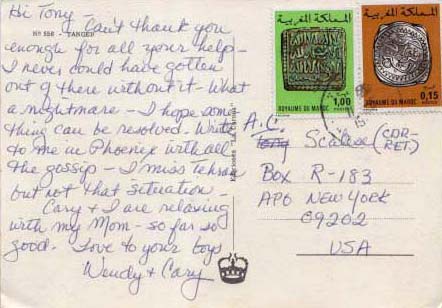 Hi Tony
Nº 556 - TANGER
Can't thank you
enough for all your help -
I never could have gotten
out of there without it - What
a nightmare - I hope some
thing can be resolved - Write
to me in Phoenix with all
the gossip - I miss Tehran
but not that situation -
Cary + I are relaxing
with my Mom - so far so
good - Love to your boys
Wendy + Cary
المملكة المغربية
ROYAUME DU MAROC
1,00
المملكة المغربية
ROYAUME DU MAROC
0,15
A.C.
Tony Scalise (COR-
RET)
Box R-183
APO NEW YORK
09202
USA